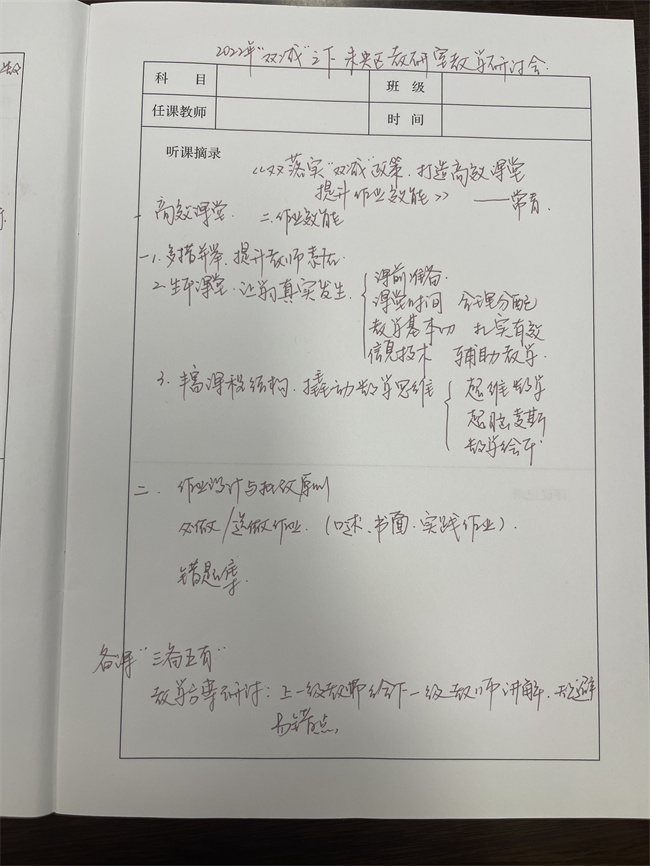 2022年"双减"之下 未央区教研室教学研讨会.
科 目
班 级
任课教师
时 间
听课摘录
《双落实"双减"政策.打造高效课堂
提升作业效能》 ——常青.
一 高效课堂. 二.作业效能
一1.多措并举,提升教师素
2.生本课堂.让学真实发生.
课前准备.
课堂时间 合理分配
教学基本功 扎实有效
信息技术 辅助教学.
3.丰富课程结构.撬动数学思维
思维数学
思脑麦斯
数学绘本
二. 作业设计与批改原则
必做/选做作业.(口述.书面.实践作业).
错题集.
备课"三备五有"
教学 研讨:上一级教师给下一级教师讲解.规避
易错点,